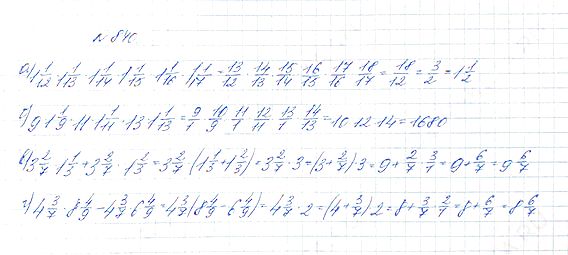 № 840
а) 1 1/12 · 1 1/13 · 1 1/14 · 1 1/15 · 1 1/16 · 1 1/17 = 13/12 · 14/13 · 15/14 · 16/15 · 17/16 · 18/17 = 18/12 = 3/2 = 1 1/2
б) 9 · 1 1/9 · 11 · 1 1/11 · 13 · 1 1/13 = 9/1 · 10/9 · 11/1 · 12/11 · 13/1 · 14/13 = 10 · 12 · 14 = 1680
в) 3 2/7 · 1 1/3 + 3 2/7 · 1 2/3 = 3 2/7 · (1 1/3 + 1 2/3) = 3 2/7 · 3 = (3 + 2/7) 3 = 9 + 2/7 · 3/1 = 9 + 6/7 = 9 6/7
г) 4 3/7 · 8 4/9 - 4 3/7 · 6 4/9 = 4 3/7 (8 4/9 - 6 4/9) = 4 3/7 · 2 = (4 + 3/7) 2 = 8 + 3/7 · 2/1 = 8 + 6/7 = 8 6/7